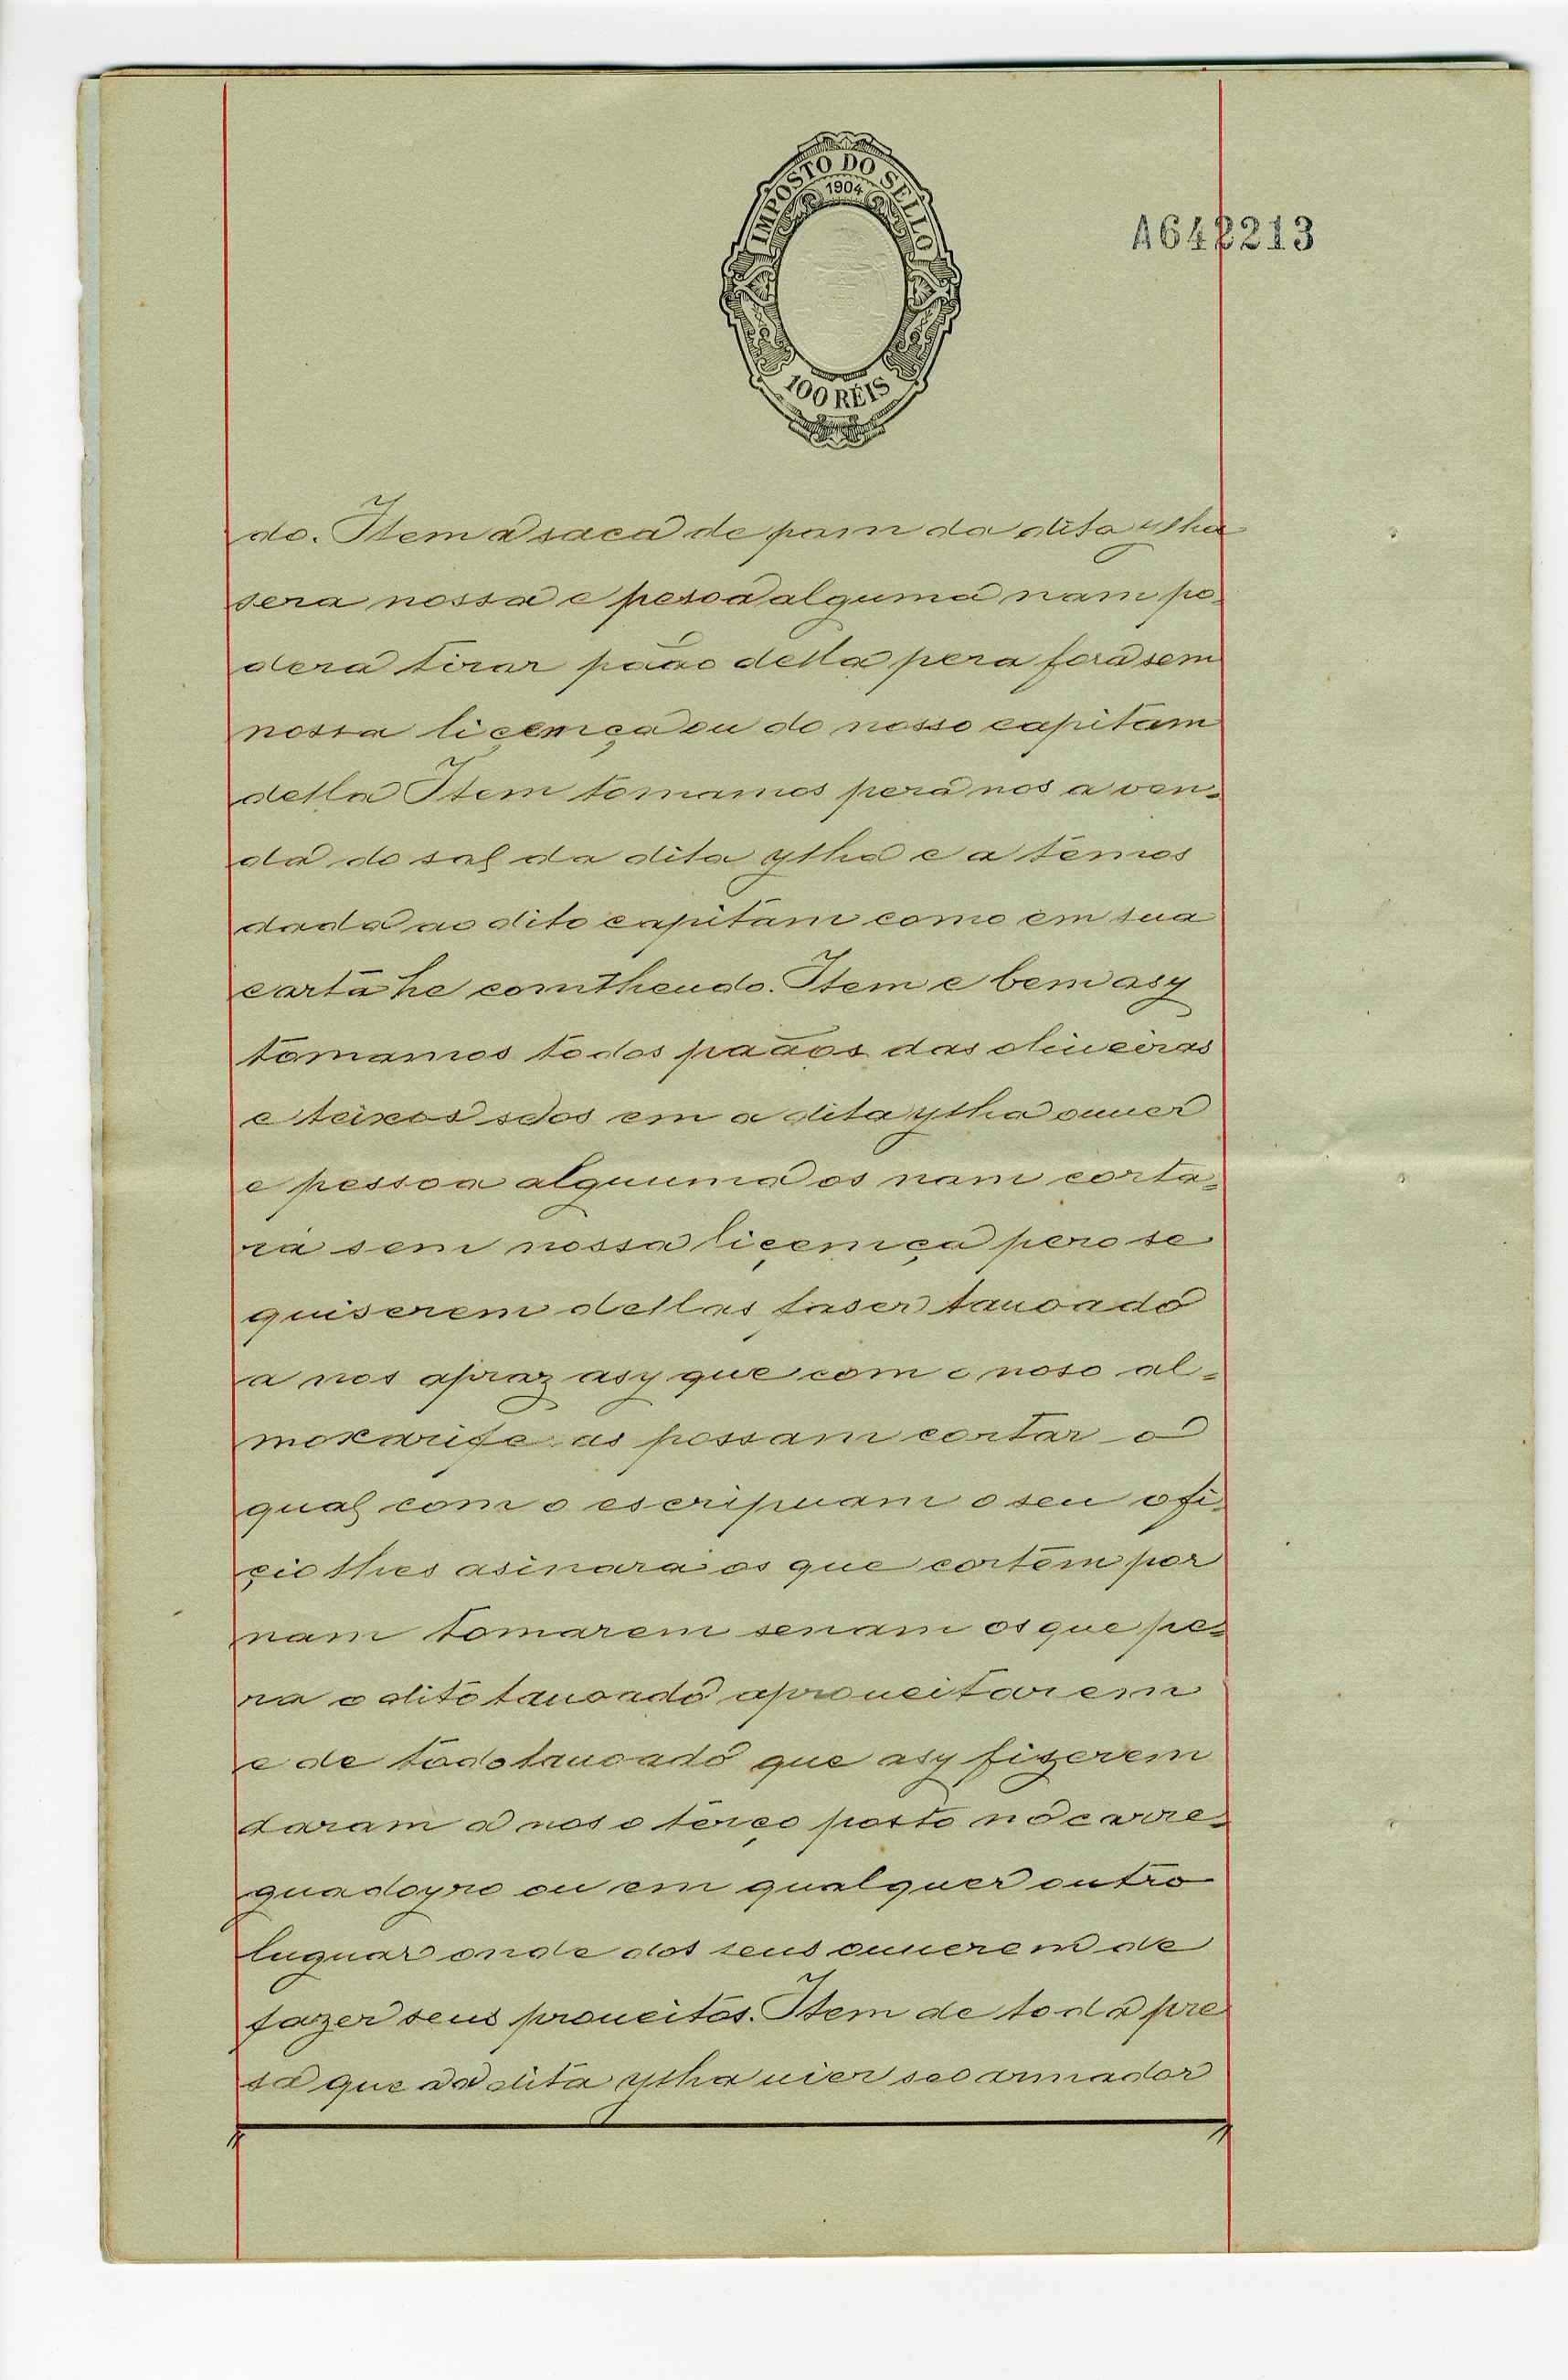 IMPOSTO DO SELLO
1904
100 RÉIS
A642213
do. Item a saca de pam da dita ylha
sera nossa e pesoa alguma nam po-
dera tirar pãao della pera fora sem
nossa liçemça ou do nosso capitam
della Item tomamos pera nos a ven-
da do sal da dita ylha e a temos
dada ao dito capitam como em sua
carta he comtheudo. Item e bem asy
tomamos todos paãos das oliueiras
e teixos se os em a dita ylha ouuer
e pessoa alguuma os nam corta-
ra sem nossa liçemça pero se
quiserem dellas faser tauoado
a nos apraz asy que com o noso al-
moxarife as possam cortar o
qual com o escripuam o seu ofi-
çio lhes asinara os que cortem por
nam tomarem senam os que pe-
ra o dito tauoado aproueitarem
e de todo tauoado que asy fizerem
daram a nos o terço posto no carre-
guadoyro ou em qualquer outro
luguar onde dos seus ouuerem de
fazer seus proueitos. Item de toda pre
sa que aa dita ylha uier se o armador